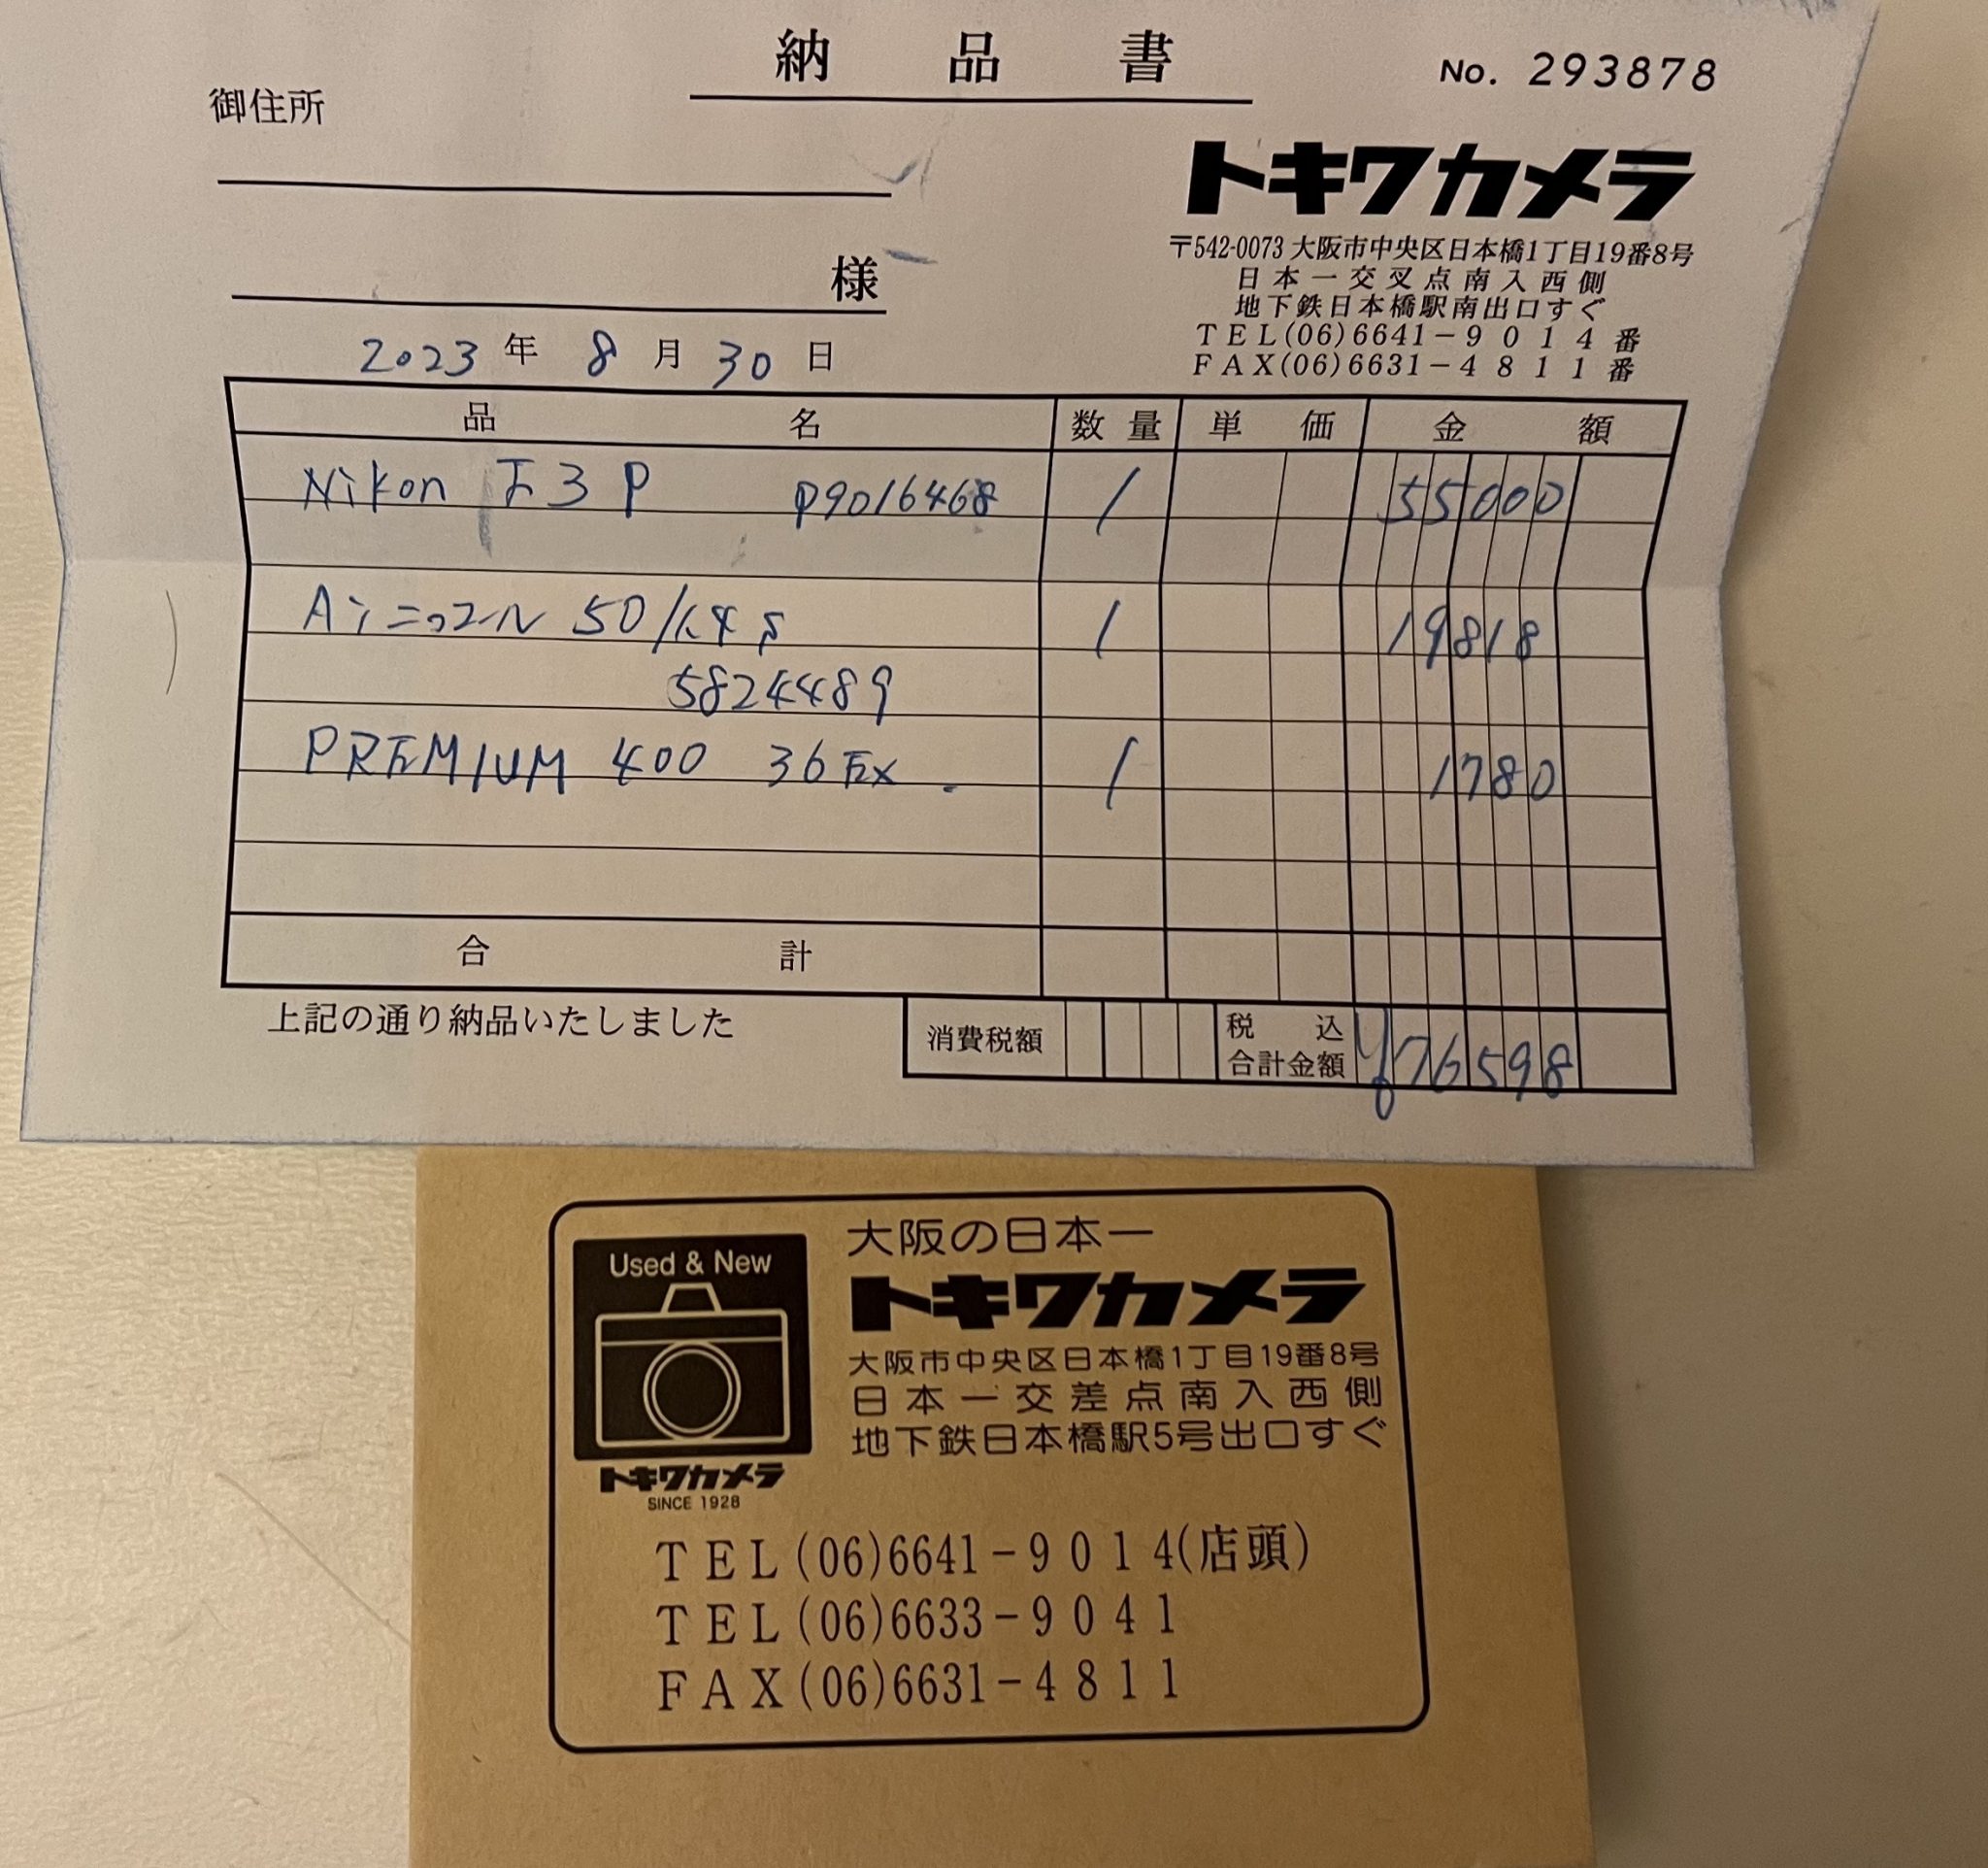 納品書
No. 293878
御住所
様
トキワカメラ
〒542-0073 大阪市中央区日本橋1丁目19番8号
日本一交叉点南入西側
地下鉄日本橋駅南出口すぐ
TEL(06)6641-9014番
FAX(06)6631-4811番
2023年8月30日
品名 数量 単価 金額
Nikon F3P P9016468 1 55000
Aiニッコール 50/1.4 S 1 19818
5824489
PREMIUM 400 36EX. 1 1780
合計
上記の通り納品いたしました
消費税額 税込合計金額 ¥76598
Used & New
トキワカメラ
SINCE 1928
大阪の日本一
トキワカメラ
大阪市中央区日本橋1丁目19番8号
日本一交差点南入西側
地下鉄日本橋駅5号出口すぐ
TEL(06)6641-9014(店頭)
TEL(06)6633-9041
FAX(06)6631-4811